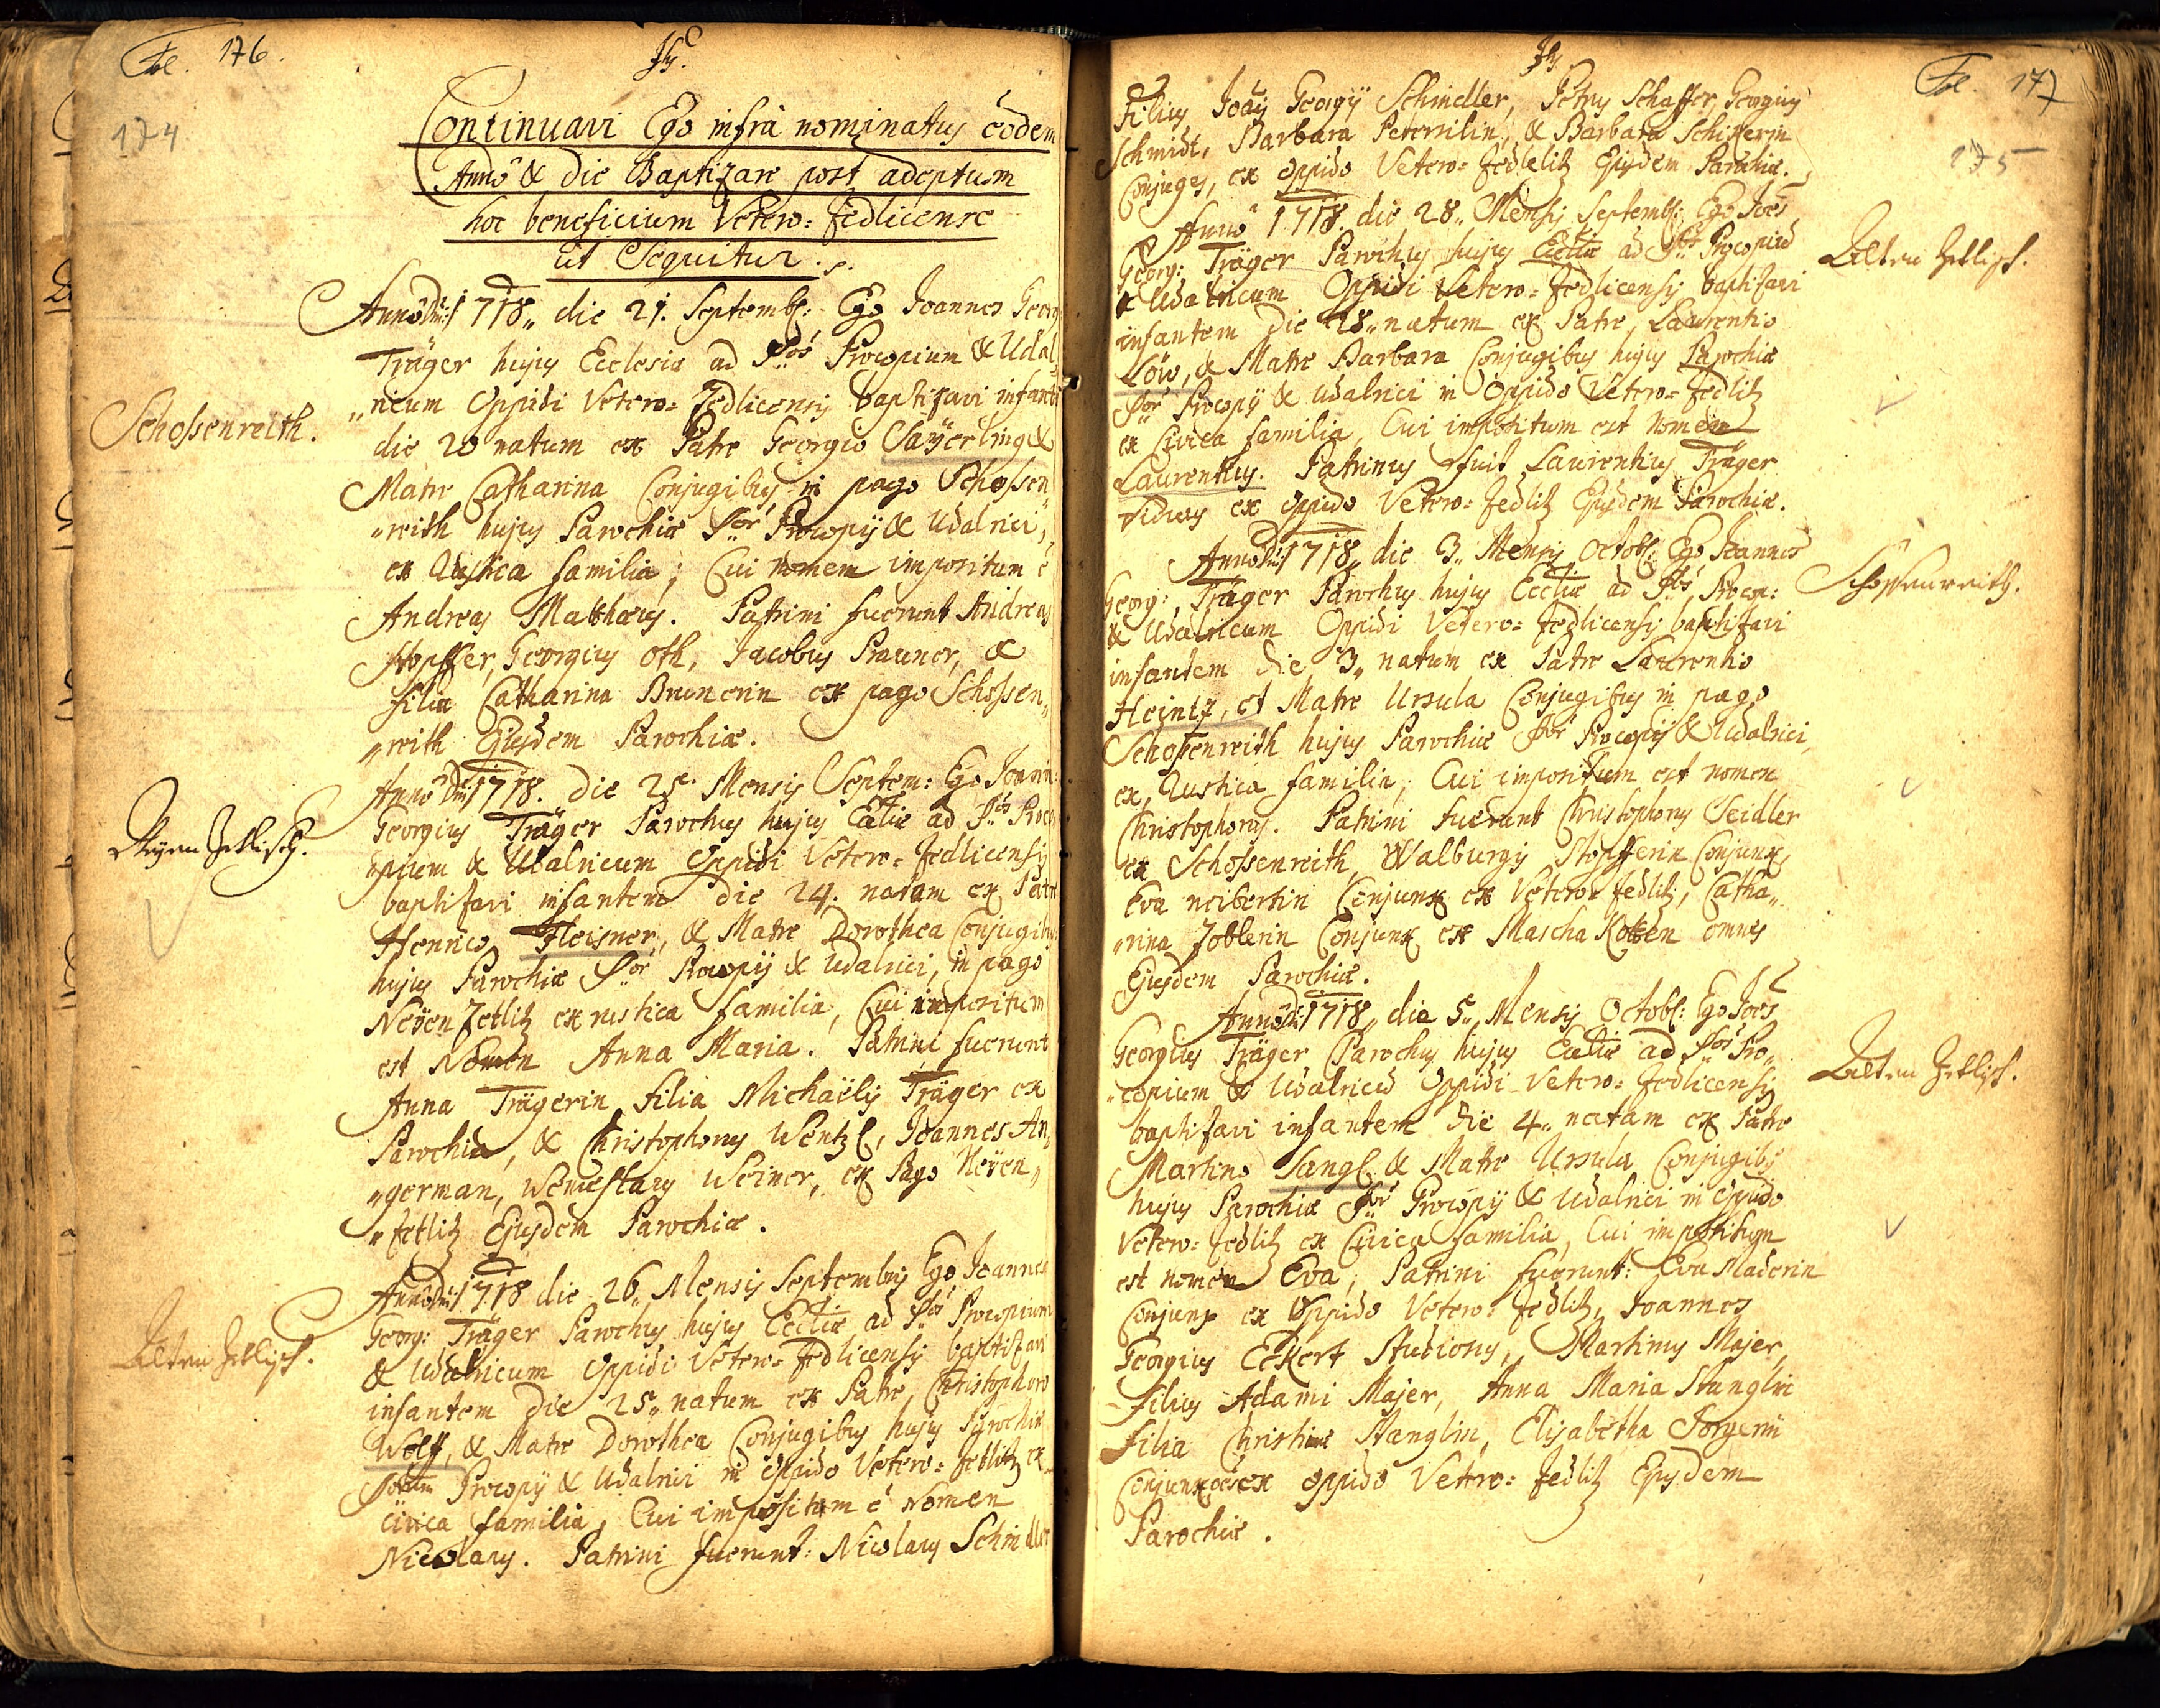 Fol. 176.
174
Continuavi Ego infrà nominatus eodem
Anno & die Baptizare post adeptum
hoc beneficium Vetero=Zedlicense
ut Sequitur.
Anno Dni 1718 die 21. Septemb: Ego Joannes Georg
Träger hujus Ecclesiæ ad SSos Procopium & Udal
„ricum Oppidi Vetero=Zedlicensis baptizavi infant
Schossenreith.
die 20 natum ex Patre Georgio Sayerling &
Matre Catharina Conjugibus in pago Schossen
„reith hujus Parochiæ SSor Procopij & Udalrici,
ex Rustica familia; Cui nomen impositum ē
Andreas Matthæus. Patrini fuerunt Andreas
Stopffer, Georgius Oth, Jacobus Prauner, &
filia Catharina Brunerin ex pago Schossen„
„reith Ejusdem Parochiæ.
Anno Dni 1718. die 25. Mensis Septem: Ego Joann:
Georgius Träger Parochus hujus Ecclię ad SSos Proco
Neyen Zettlisch.
„pium & Udalricum Oppidi Vetero=Zedlicensis
baptizavi infantem die 24. natam ex Patre
Henrico Fleisner, & Matre Dorothea Conjugibus
hujus Parochiæ SSor Procopij & Udalrici, in pago
Neyen Zetlitz ex rustica familia, Cui impositum
est Nomen Anna Maria. Patrini fuerunt
Anna Trägerin filia Michaëlis Träger ex
Parochia, & Christophorus Wentzl, Joannes An„
„german, Wenceslaus Weiner, ex Pago Neyen„
„Zetlitz Ejusdem Parochiæ.
Anno Dni 1718 die 26 Mensis Septembris Ego Joannes
Georg: Träger Parochus hujus Ecclię ad SSos Procopium
Alten Zettlisch.
& Udalricum Oppidi Vetero=Zedlicensis baptizavi
infantem die 25 natum ex Patre, Christophoro
Wolff, & Matre Dorothea Conjugibus hujus Parochiæ
SSorum Procopij & Udalrici in Oppido Vetero=Zetlitz ex
civica familia, Cui impositum ē Nomen
Nicolaus. Patrini fuerunt: Nicolaus Schindler
Fol. 177
275
Filius Joan̄is Georgij Schindler, Petrus Schaffer, Georgius
Schmidt, Barbara Petersilin, & Barbara Schifferin
Conjuges, ex Oppido Vetero=Zedlitz Ejusdem Parochiæ.
Anno 1718. die 28. Mensis Septemb: Ego Joēs
Georg: Träger Parochus hujus Ecclię ad SSos Procopiū
Alten Zettlisch.
& Udalricum Oppidi Vetero=Zedlicensis baptizavi
infantem die 28 natum ex Patre, Laurentio
Löw, & Matre Barbara Conjugibus hujus Parochiæ
SSor Procopij & Udalrici in Oppido Vetero=Zedlitz
ex Civica familia, Cui impositum est Nomen
Laurentius. Patrinus fuit Laurentius Träger
viduus ex Oppido Vetero=Zedlitz Ejusdem Parochiæ.
Anno Dni 1718 die 3. Mensis Octob: Ego Joannes
Georg: Träger Parochus hujus Ecclię ad SSos Procop:
Schossenreith.
& Udalricum Oppidi Vetero=Zedlicensis baptizavi
infantem die 3 natum ex Patre Laurentio
Heintz, et Matre Ursula Conjugibus in pago
Schossenreith hujus Parochiæ SSor Procopij & Udalrici,
ex Rustica familia, Cui impositum est nomen
Christophorus. Patrini fuerunt Christophorus Seidler
ex Schossenreith, Walburgis Stopfferin Conjunx
Eva neibertin Conjunx ex Vetero=Zedlitz, Catha„
„rina Zoblerin Conjunx ex Mascha Kotten omnes
Ejusdem Parochiæ.
Anno Dni 1718 die 5. Mensis Octob: Ego Joēs
Georgius Träger Parochus hujus Ecclię ad SSos Pro„
Alten Zettlisch.
„copium & Udalricū Oppidi Vetero=Zedlicensis
baptizavi infantem die 4 natam ex Patre
Martino Sangl & Matre Ursula Conjugibus
hujus Parochiæ SSor Procopij & Udalrici in Oppido
Vetero=Zedlitz ex Civica familia, Cui impositum
est nomen Eva, Patrini fuerunt: Eva Maderin
Conjunx ex Oppido Vetero=Zedlitz, Joannes
Georgius Eckert Studiosus, Martinus Majer,
filius Adami Majer, Anna Maria Stanglin
filia Christinæ Stanglin, Elisabetha Sorgerin
Conjunx ex Oppido Vetero=Zedlitz Ejusdem
Parochiæ.